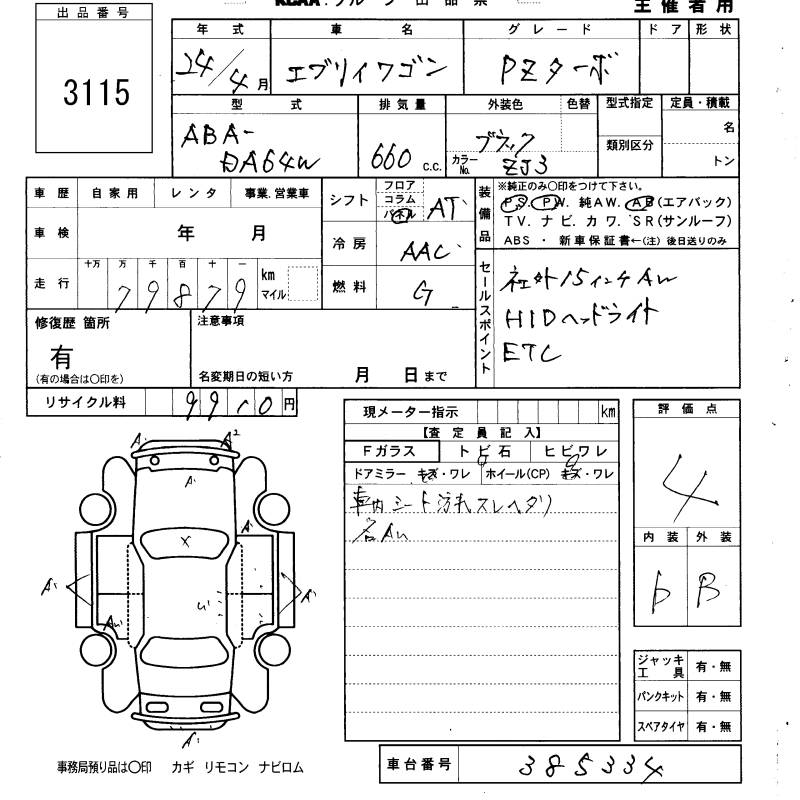 主催者用
出品番号
3115
年式 車名 グレード ドア 形状
24/4月 エブリイワゴン PZターボ
型式 排気量 外装色 色替 型式指定 定員・積載
ABA-
DA64W 660 c.c. ブラック カラーNo. ZJ3 類別区分 名
トン
車歴 自家用 レンタ 事業.営業車
車検 年 月
走行 十万 万 千 百 十 一
79879 km マイル
シフト フロア コラム パネル AT
冷房 AAC
燃料 G
装備品 ※純正のみ〇印をつけて下さい。
PS. PW. 純AW. AB(エアバック)
TV. ナビ. カワ. SR(サンルーフ)
ABS ・ 新車保証書←(注) 後日送りのみ
セールスポイント
社外15インチAW
HIDヘッドライト
ETC
修復歴 箇所
有
(有の場合は〇印を)
注意事項
名変期日の短い方 月 日まで
リサイクル料 9910円
現メーター指示 km
【査定員記入】
Fガラス トビ石 ヒビワレ
ドアミラー キズ・ワレ ホイール(CP) キズ・ワレ
車内シート汚れスレヘタリ
評価点
4
内装 外装
b B
ジャッキ工具 有・無
パンクキット 有・無
スペアタイヤ 有・無
A' A2
A'
A'
X
A' U' A'
AU'
A'
事務局預り品は〇印 カギ リモコン ナビロム
車台番号 385334